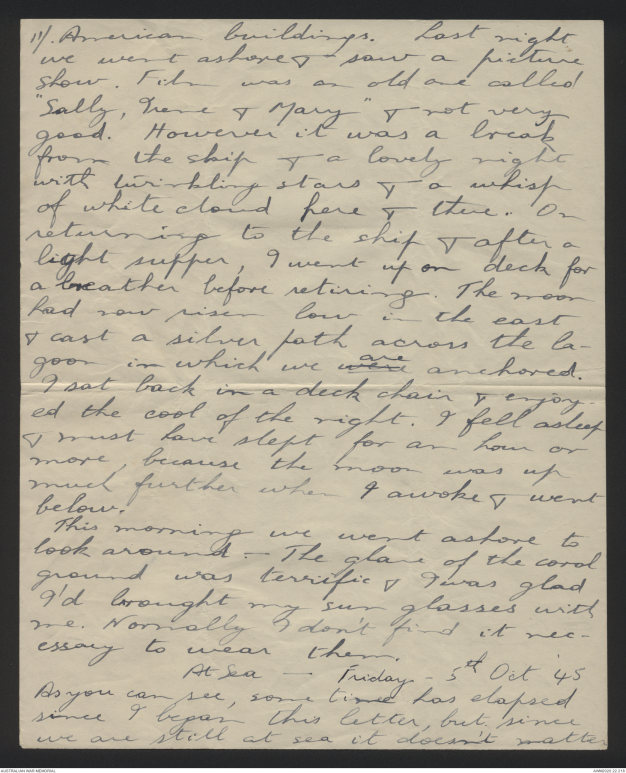 11/. American buildings. Last night
we went ashore & saw a picture
show. Film was an old one called
"Sally, Irene & Mary" & not very
good. However it was a break
from the ship & a lovely night
with twinkling stars & a whisp
of white cloud here & there. On
returning to the ship & after a
light supper, I went up on deck for
a breather before retiring. The moon
had now risen low in the east
& cast a silver path across the la-
goon in which we were are anchored.
I sat back in a deck chair & enjoy-
ed the cool of the night. I fell asleep
& must have slept for an hour or
more, because the moon was up
much further when I awoke & went
below.
This morning we went ashore to
look around. — The glare of the coral
ground was terrific & I was glad
I'd brought my sun glasses with
me. Normally I don't find it nec-
essary to wear them.
At Sea — Friday - 5th Oct '45
As you can see, some time has elapsed
since I began this letter, but, since
we are still at sea it doesn't matter
AUSTRALIAN WAR MEMORIAL